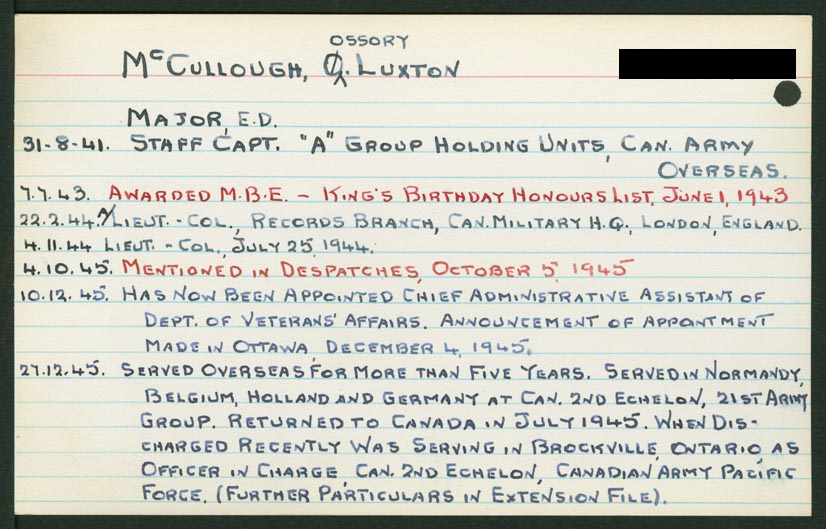 OSSORY
McCULLOUGH, O. LUXTON
MAJOR, E.D.
31-8-41. STAFF CAPT. "A" GROUP HOLDING UNITS, CAN. ARMY
OVERSEAS.
7.7.43. AWARDED M.B.E. - KING'S BIRTHDAY HONOURS LIST, JUNE 1, 1943
22.2.44. A/LIEUT.-COL., RECORDS BRANCH, CAN. MILITARY H.Q., LONDON, ENGLAND.
4.11.44 LIEUT.-COL., JULY 25, 1944.
4.10.45. MENTIONED IN DESPATCHES, OCTOBER 5, 1945
10.12.45. HAS NOW BEEN APPOINTED CHIEF ADMINISTRATIVE ASSISTANT OF
DEPT. OF VETERANS' AFFAIRS. ANNOUNCEMENT OF APPOINTMENT
MADE IN OTTAWA, DECEMBER 4, 1945.
27.12.45. SERVED OVERSEAS FOR MORE THAN FIVE YEARS. SERVED IN NORMANDY,
BELGIUM, HOLLAND AND GERMANY AT CAN. 2ND ECHELON, 21ST ARMY
GROUP. RETURNED TO CANADA IN JULY 1945. WHEN DIS-
CHARGED RECENTLY WAS SERVING IN BROCKVILLE, ONTARIO, AS
OFFICER IN CHARGE, CAN. 2ND ECHELON, CANADIAN ARMY PACIFIC
FORCE. (FURTHER PARTICULARS IN EXTENSION FILE).